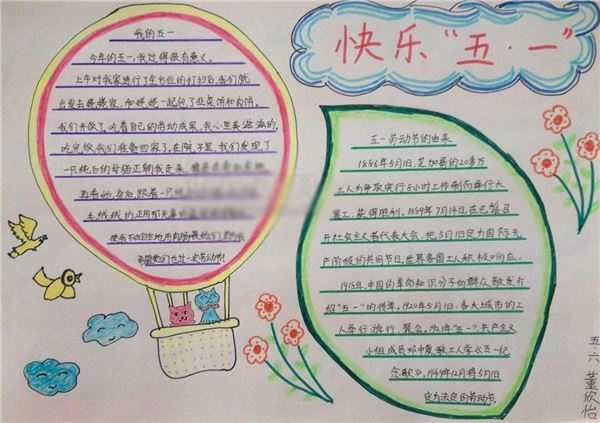 快乐“五·一”
我的五一
今年的五一,我过得很有意义。
上午对我家进行了全方位的打扫后,我们就
出发去姥姥家,和姥姥一起包了韭菜饼和肉饼。
我们开饭了,吃着自己的劳动成果,我心里美滋滋的。
吃完饭我们准备回家了,在院子里,我们发现了
一只纯白的母猫正朝我走来
再看她,身后跟着一只
毛绒绒的
五一劳动节的由来
1886年5月1日,芝加哥的20多万
工人为争取实行8小时工作制而举行大
罢工,获得胜利。1889年7月14日,在巴黎召
开社会主义者代表大会,把5月1日定为国际无
产阶级的共同节日,世界各国工人积极响应。
1918年,中国的革命知识分子向群众散发介
绍“五一”的传单,1920年5月1日,各大城市的工
人举行游行、聚会,1921年“五一”,共产主义
小组成员邓中夏教工人学《五一纪
念歌》,1949年12月将5月1日
定为法定的劳动节。
五六 董欣怡